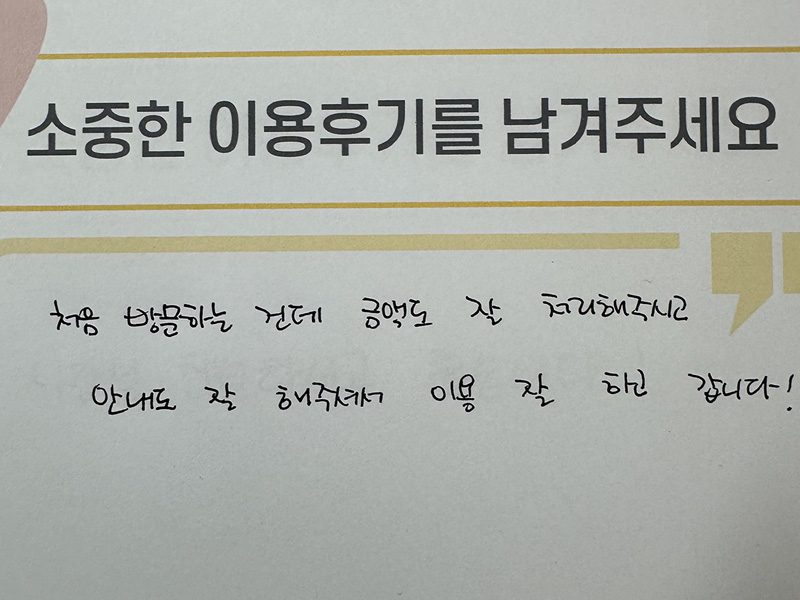 소중한 이용후기를 남겨주세요
처음 방문하는 건데 금액도 잘 처리해주시고
안내도 잘 해주셔서 이용 잘 하고 갑니다!